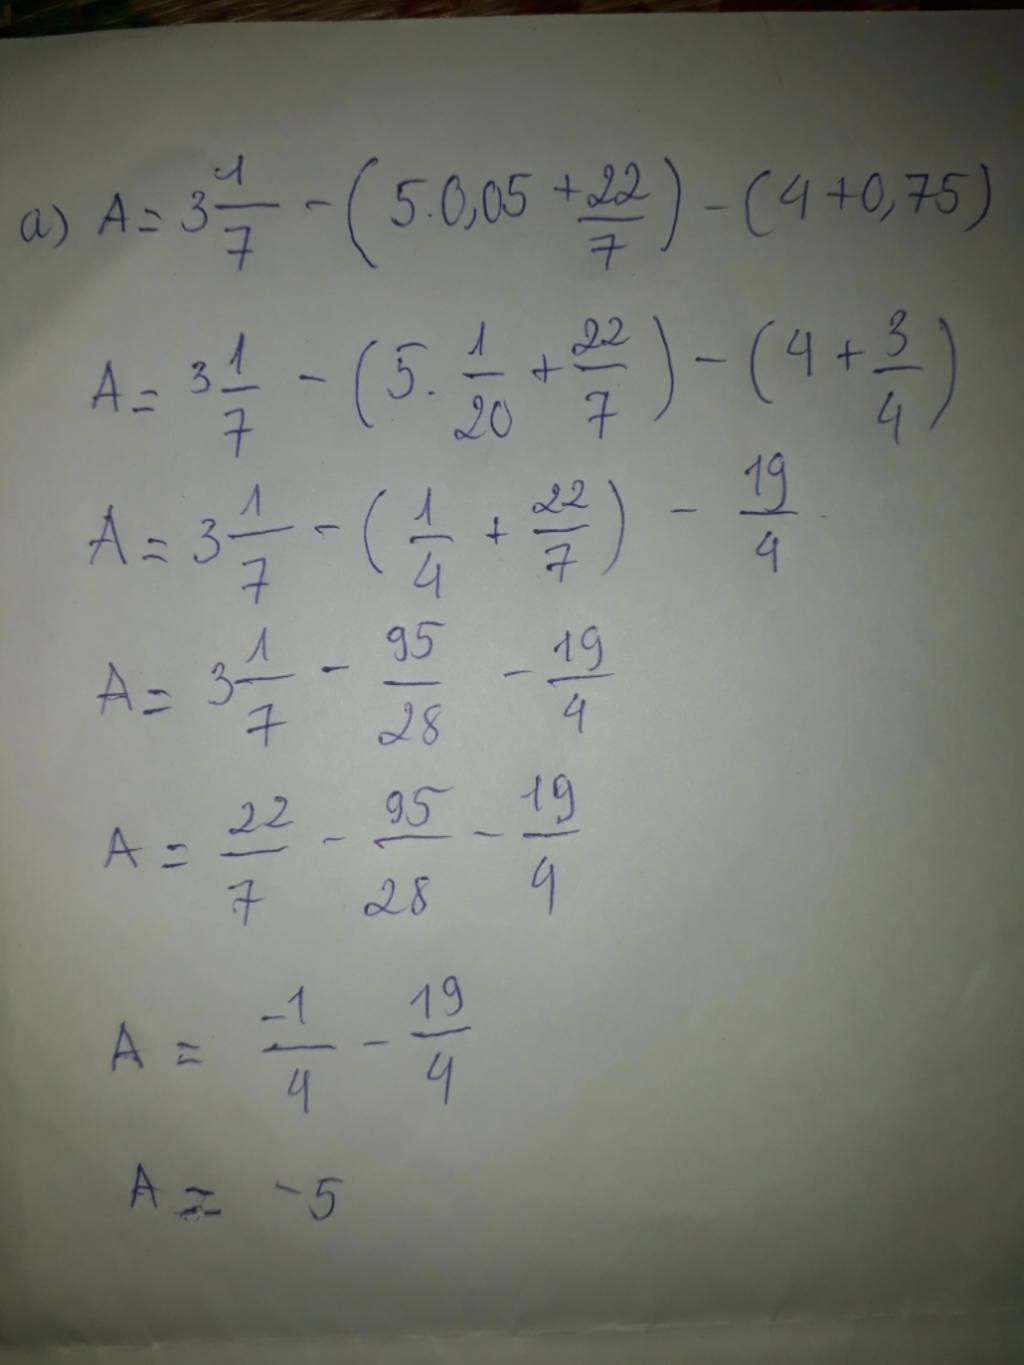 a) A = 3 1/7 - (5.0,05 + 22/7) - (4 + 0,75)
A = 3 1/7 - (5. 1/20 + 22/7) - (4 + 3/4)
A = 3 1/7 - (1/4 + 22/7) - 19/4
A = 3 1/7 - 95/28 - 19/4
A = 22/7 - 95/28 - 19/4
A = -1/4 - 19/4
A = -5